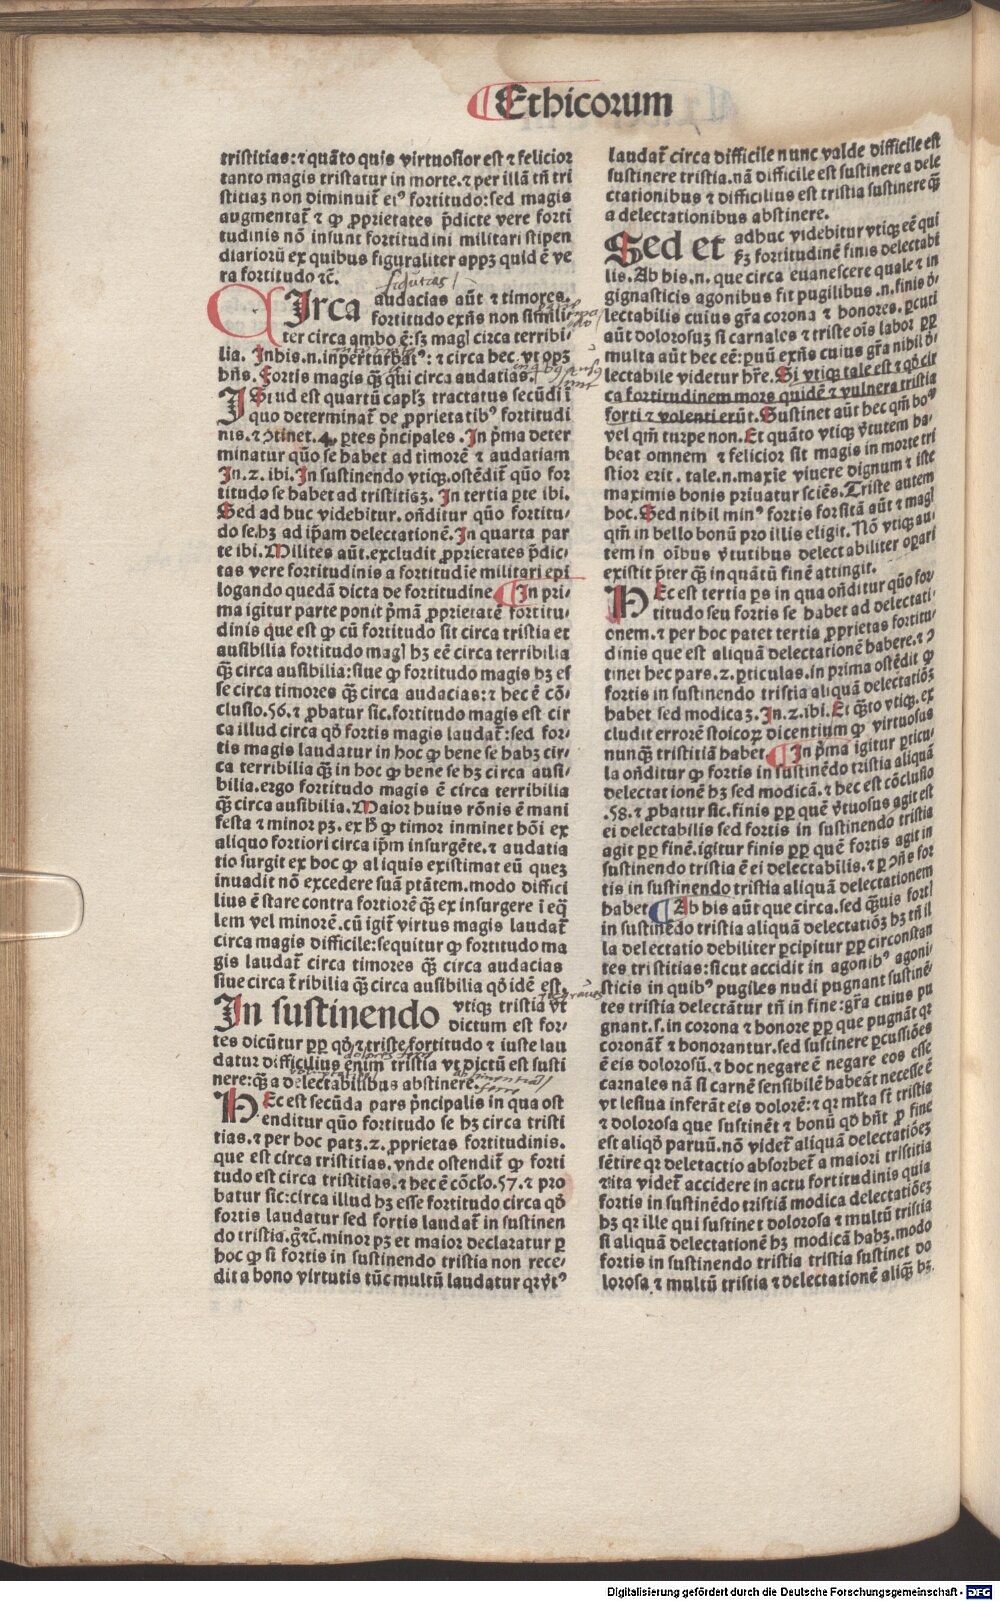 Ethicorum
tristitias: ⁊ quãto quis virtuosior est ⁊ felicior
tanto magis tristatur in morte. ⁊ per illã tñ tri
stitiaʒ non diminuit̃ eiꝰ fortitudo: sed magis
augmentat̃ ⁊ ꝙ ꝓprietates p̃dicte vere forti
tudinis nõ insunt fortitudini militari stipen
diariorũ ex quibus figuraliter appʒ quid ẽ ve
ra fortitudo ⁊c̃.
CIrca audacias aũt ⁊ timores.
fortitudo exñs non simili
ter circa ambo ẽ: sʒ magꝭ circa terribi⸗
lia. In his .n. inperturbatꝰ: ⁊ circa hec vt opʒ
hñs. Fortis magis q̃ʒ qui circa audatias.
IStud est quartũ caplʒ tractatus secũdi ĩ
quo determinat̃ de ꝓprietatibꝰ fortitudi
nis. ⁊ ꝯtinet .4. ꝑtes p̃ncipales. In p̃ma deter
minatur quõ se habet ad timorẽ ⁊ audatiam
In .2. ibi. In sustinendo vtiqʒ. ostẽdit̃ quõ for
titudo se habet ad tristitiaʒ. In tertia ꝑte ibi.
Sed ad huc videbitur. oñditur quõ fortitu⸗
do se.hʒ ad ip̃am delectationẽ. In quarta par
te ibi. Milites aũt. excludit ꝓprietates p̃dic⸗
tas vere fortitudinis a fortitudĩe militari epi
logando quedã dicta de fortitudine. In pri⸗
ma igitur parte ponit p̃mã ꝓprietatẽ fortitu⸗
dinis que est ꝙ cũ fortitudo sit circa tristia et
ausibilia fortitudo magꝭ hʒ eẽ circa terribilia
q̃ʒ circa ausibilia: siue ꝙ fortitudo magis hʒ es
se circa timores q̃ʒ circa audacias: ⁊ hec ẽ cõ⸗
clusio .56. ⁊ ꝓbatur sic. fortitudo magis est cir
ca illud circa qõ fortis magis laudat̃: sed for⸗
tis magis laudatur in hoc ꝙ bene se habʒ cir⸗
ca terribilia q̃ʒ in hoc ꝙ bene se hʒ circa ausi⸗
bilia. ergo fortitudo magis ẽ circa terribilia
q̃ʒ circa ausibilia. Maior huius rõnis ẽ mani
festa ⁊ minor pʒ. ex h̃ ꝙ timor inminet hõi ex
aliquo fortiori circa ip̃m insurgẽte. ⁊ audatia
tio surgit ex hoc ꝙ aliquis existimat eũ queʒ
inuadit nõ excedere suã ptãtem. modo diffici
lius ẽ stare contra fortiorẽ q̃ʒ ex insurgere ĩ eq̃
lem vel minorẽ. cũ igit̃ virtus magis laudat̃
circa magis difficile: sequitur ꝙ fortitudo ma
gis laudat̃ circa timores q̃ʒ circa audacias
siue circa t̃ribilia q̃ʒ circa ausibilia qõ idẽ est.
In sustinendo vtiqʒ tristia vt
dictum est for⸗
tes dicũtur ꝓp qõ ⁊ triste fortitudo ⁊ iuste lau
datur difficilius enim tristia vt dictũ est susti
nere: q̃ʒ a delectabilibus abstinere.
HEc est secũda pars p̃ncipalis in qua ost
enditur quõ fortitudo se hʒ circa tristi
tias. ⁊ per hoc patʒ .2. ꝓprietas fortitudinis.
que est circa tristitias. vnde ostendit̃ ꝙ forti
tudo est circa tristitias. ⁊ hec ẽ cõclo .57. ⁊ pro
batur sic: circa illud hʒ esse fortitudo circa qõ
fortis laudatur sed fortis laudat̃ in sustinen
do tristia. g̃⁊c̃. minor pʒ et maior declaratur ꝑ
hoc ꝙ si fortis in sustinendo tristia non rece⸗
dit a bono virtutis tũc multũ laudatur qꝛ v̓tꝰ
laudat̃ circa difficile nunc valde difficile est
sustinere tristia. nã difficile est sustinere a dele
ctationibus ⁊ difficilius est tristia sustinere q̃ʒ
a delectationibus abstinere.
Sed et adhuc videbitur vtiqʒ eẽ qui
fʒ fortitudinẽ finis delectabi
lis. Ab his .n. que circa euanescere quale ⁊ in
gignasticis agonibus fit pugilibus .n. finis d̓⸗
lectabilis cuius gr̃a corona ⁊ honores. ꝑcuti
aũt dolorosuʒ si carnales ⁊ triste oĩs labor ꝓp
multa aũt hec eẽ: puũ exñs cuius gr̃a nihil d̓⸗
lectabile videtur hr̃e. Si vtiqʒ tale est ⁊ qõ cir
ca fortitudinem mors quidẽ ⁊ vulnera tristia
forti ⁊ volenti erũt. Sustinet aũt hec qm̃ boꝰ
vel qm̃ turpe non. Et quãto vtiqʒ v̓tutem ha⸗
beat omnem ⁊ felicior sit magis in morte tri
stior erit. tale .n. maxĩe viuere dignum ⁊ iste
maximis bonis priuatur sciẽs. Triste autem
hoc. Sed nihil minꝰ fortis forsitã aũt ⁊ magꝭ
qm̃ in bello bonũ pro illis eligit. Nõ vtiqʒ au⸗
tem in oĩbus v̓tutibus delectabiliter oꝑari
existit p̃ter q̃ʒ inquãtũ finẽ attingit.
HEc est tertia ps in qua oñditur quõ for
titudo seu fortis se habet ad delectati⸗
onem. ⁊ per hoc patet tertia ꝓprietas fortitu⸗
dinis que est aliquã delectationẽ habere. ⁊ ꝯ
tinet hec pars .2. ꝑticulas. in prima ostẽdit ꝙ
fortis in sustinendo tristia aliquã delectatiõʒ
habet sed modicaʒ. In .2. ibi. Et q̃to vtiqʒ. ex
cludit errorẽ stoicoꝝ dicentium ꝙ virtuosus
nunq̃ʒ tristitiã habet. In p̃ma igitur ꝑticu⸗
la oñditur ꝙ fortis in sustinẽdo tristia aliquã
delectationẽ hʒ sed modicã. ⁊ hec est cõclusio
.58. ⁊ ꝓbatur sic. finis ꝓp quẽ v̓tuosus agit est
ei delectabilis sed fortis in sustinendo tristia
agit ꝓp finẽ. igitur finis ꝓp quẽ fortis agit in
sustinendo tristia ẽ ei delectabilis. ⁊ ꝑ ꝯñs for
tis in sustinendo tristia aliquã delectationem
habet. Ab his aũt que circa. sed q̃uis fortꝭ
in sustinẽdo tristia aliquã delectatiõʒ hʒ tñ il
la delectatio debiliter ꝑcipitur ꝓp circonstan
tes tristitias: sicut accidit in agonibꝰ agoni⸗
sticis in quibꝰ pugiles nudi pugnant sustinẽ⸗
tes tristia delectãtur tñ in fine: gr̃a cuius pu
gnant .s. in corona ⁊ honore ꝓp que pugnãt qꝛ
coronãt̃ ⁊ honorantur. sed sustinere ꝑcussiões
ẽ eis dolorosũ. ⁊ hoc negare ẽ negare eos esse
carnales nã si carnẽ sensibilẽ habeãt necesse ẽ
vt lesiua inferãt eis dolorẽ: ⁊ qꝛ ml̃ta st̃ tristia
⁊ dolorosa que sustinẽt ⁊ bonũ qõ hñt ꝓ fine
est aliqõ paruũ. nõ videt̃ aliquã delectatiõeʒ
sẽtire qꝛ deletactio absorbet̃ a maiori tristitia
⁊ ita videt̃ accidere in actu fortitudinis quia
fortis in sustinẽdo tristiã modica delectatiõeʒ
hʒ qꝛ ille qui sustinet dolorosa ⁊ multũ tristia
si aliquã delectationẽ hʒ modicã habʒ. modo
fortis in sustinendo tristia tristia sustinet do
lorosa ⁊ multũ tristia ⁊ delectationẽ aliq̃ʒ hʒ.
Digitalisierung gefördert durch die Deutsche Forschungsgemeinschaft - DFG